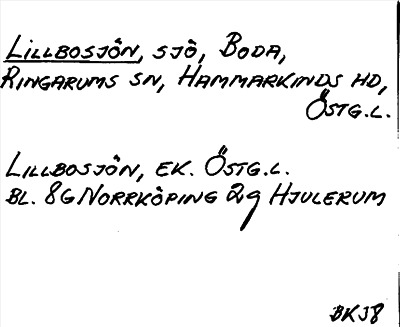 LILLBOSJÖN, SJÖ, BODA,
RINGARUMS SN, HAMMARKINDS HD,
ÖSTG.L.
LILLBOSJÖN, EK. ÖSTG.L.
BL. 8G NORRKÖPING 2g HJULERUM
BKJ8